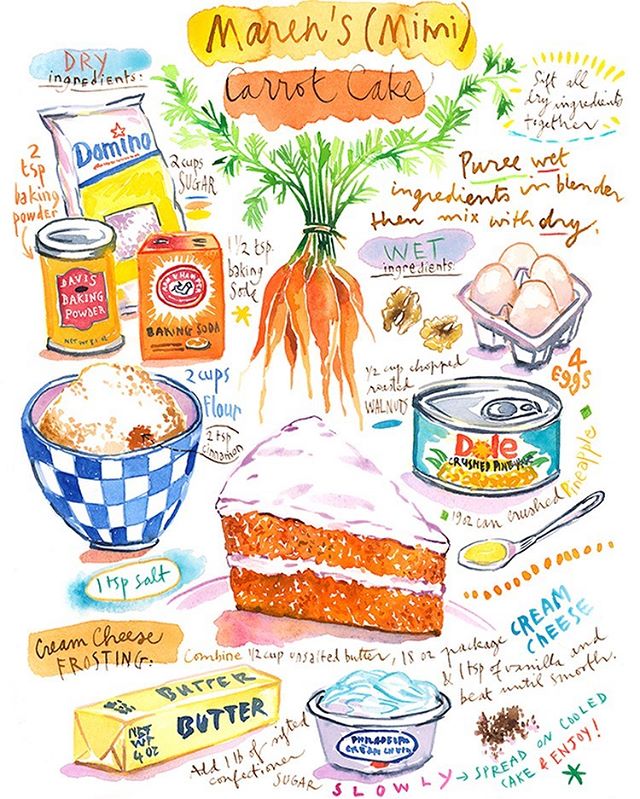 Maren's (Mimi)
Carrot Cake
DRY
ingredients:
Sift all
dry ingredients
together
Domino
2 cups
SUGAR
2
tsp
baking
powder
DAVIS
BAKING
POWDER
NET WT 8.1 OZ
ARM & HAMMER
BAKING SODA
1 1/2 tsp.
baking
Soda
Puree wet
ingredients in blender
then mix with dry.
WET
ingredients:
4
EGGS
1/2 cup chopped
roasted
WALNUTS
Dole
CRUSHED PINEAPPLE
19oz can crushed Pineapple
2 cups
Flour
2 tsp
cinnamon
1 tsp salt
Cream Cheese
FROSTING:
Combine 1/2 cup unsalted butter, 18 oz package
CREAM
CHEESE
& 1 tsp of vanilla and
beat until smooth.
BUTTER
BUTTER
NET
WT
4 OZ
Add 1 lb of sifted
confectioner
SUGAR
SLOWLY
PHILADELPHIA
CREAM
→ SPREAD ON COOLED
CAKE & ENJOY!